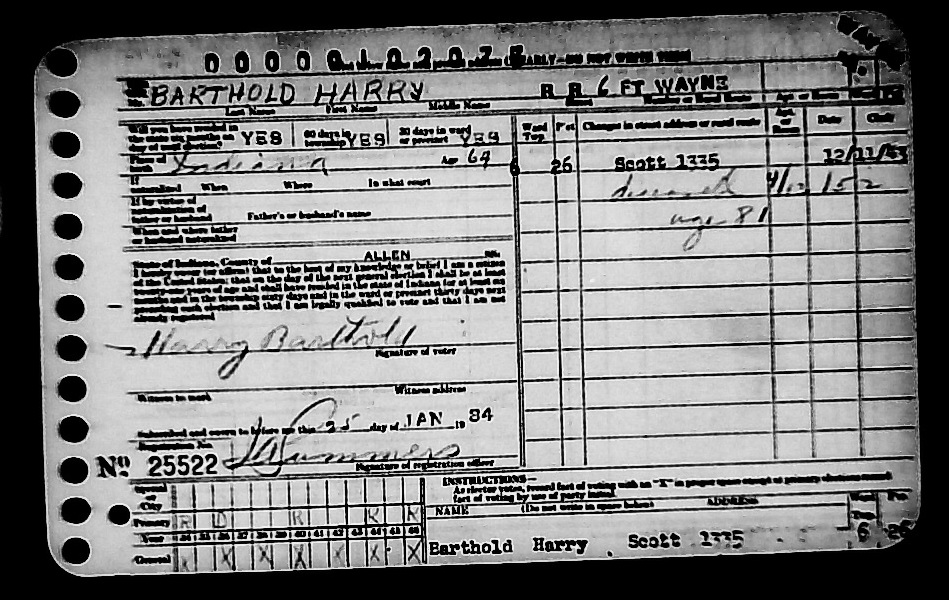 BARTHOLD HARRY R R 6 FT WAYNE
Last Name First Name Middle Name Number or Rural Route
Will you have resided in the state six months on day of next election? YES 60 days in township YES 30 days in ward or precinct YES
Place of birth Indiana Age 69
If naturalized When Where In what court
If by virtue of naturalization of father or husband Father's or husband's name
When and where father or husband naturalized
State of Indiana, County of ALLEN ss:
I hereby swear (or affirm) that to the best of my knowledge or belief I am a citizen
of the United States; that on the day of the next general election I shall be at least
years of age and shall have resided in the state of Indiana for at least six
months and in the township sixty days and in the ward or precinct thirty days next
preceding such election and that I am legally qualified to vote and that I am not
already registered
Harry Barthold
Signature of voter
Witness to mark Witness address
Subscribed and sworn to before me this 25 day of JAN 19 34
Registration No.
No 25522 Summers
Signature of registration officer
Ward Twp. P'ct Changes in street address or rural route Apt. or Room Date Clerk
6 26 Scott 1335 12/11/43
deceased 4/12/52
age 81
General or City
Primary R D R R R
Year 34 35 36 37 38 39 40 41 42 43 44 45 46
General X X X X X X X
INSTRUCTIONS—
As elector votes, record fact of voting with an "X" in proper space except at primary elections record
fact of voting by use of party initial.
NAME (Do not write in space below) ADDRESS Ward Twp. Pct.
Barthold Harry Scott 1335 6 26